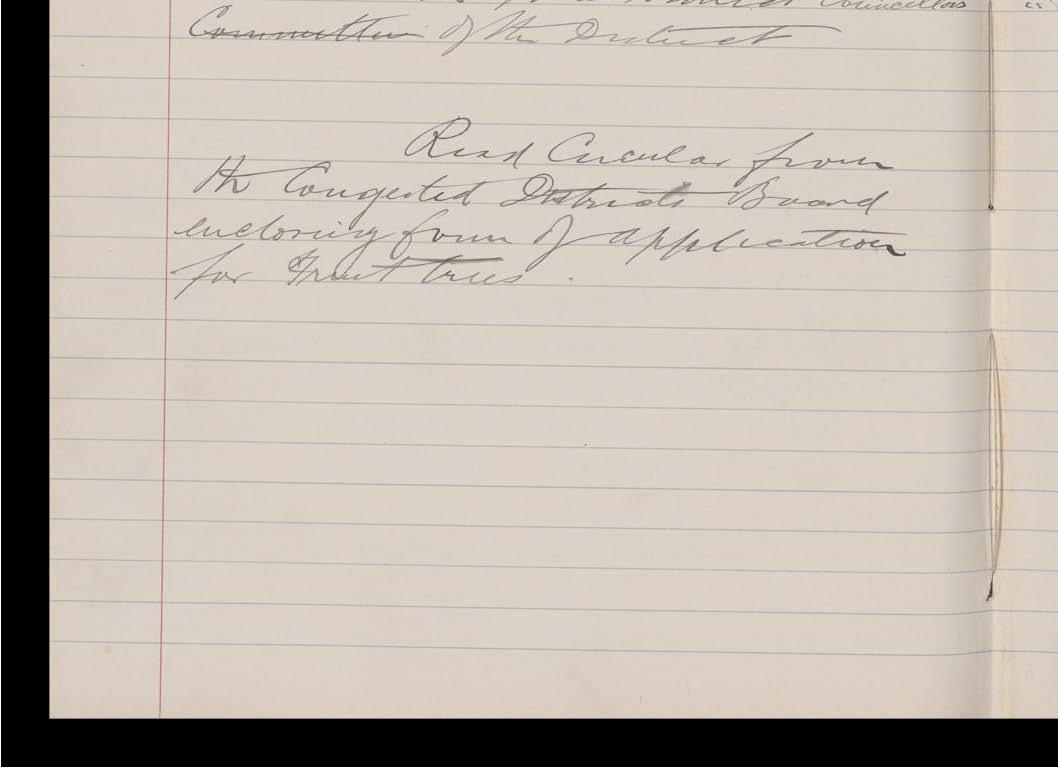 Councillors
Committee of the District
Read Circular from
the Congested Districts Board
enclosing form of application
for Fruit trees.